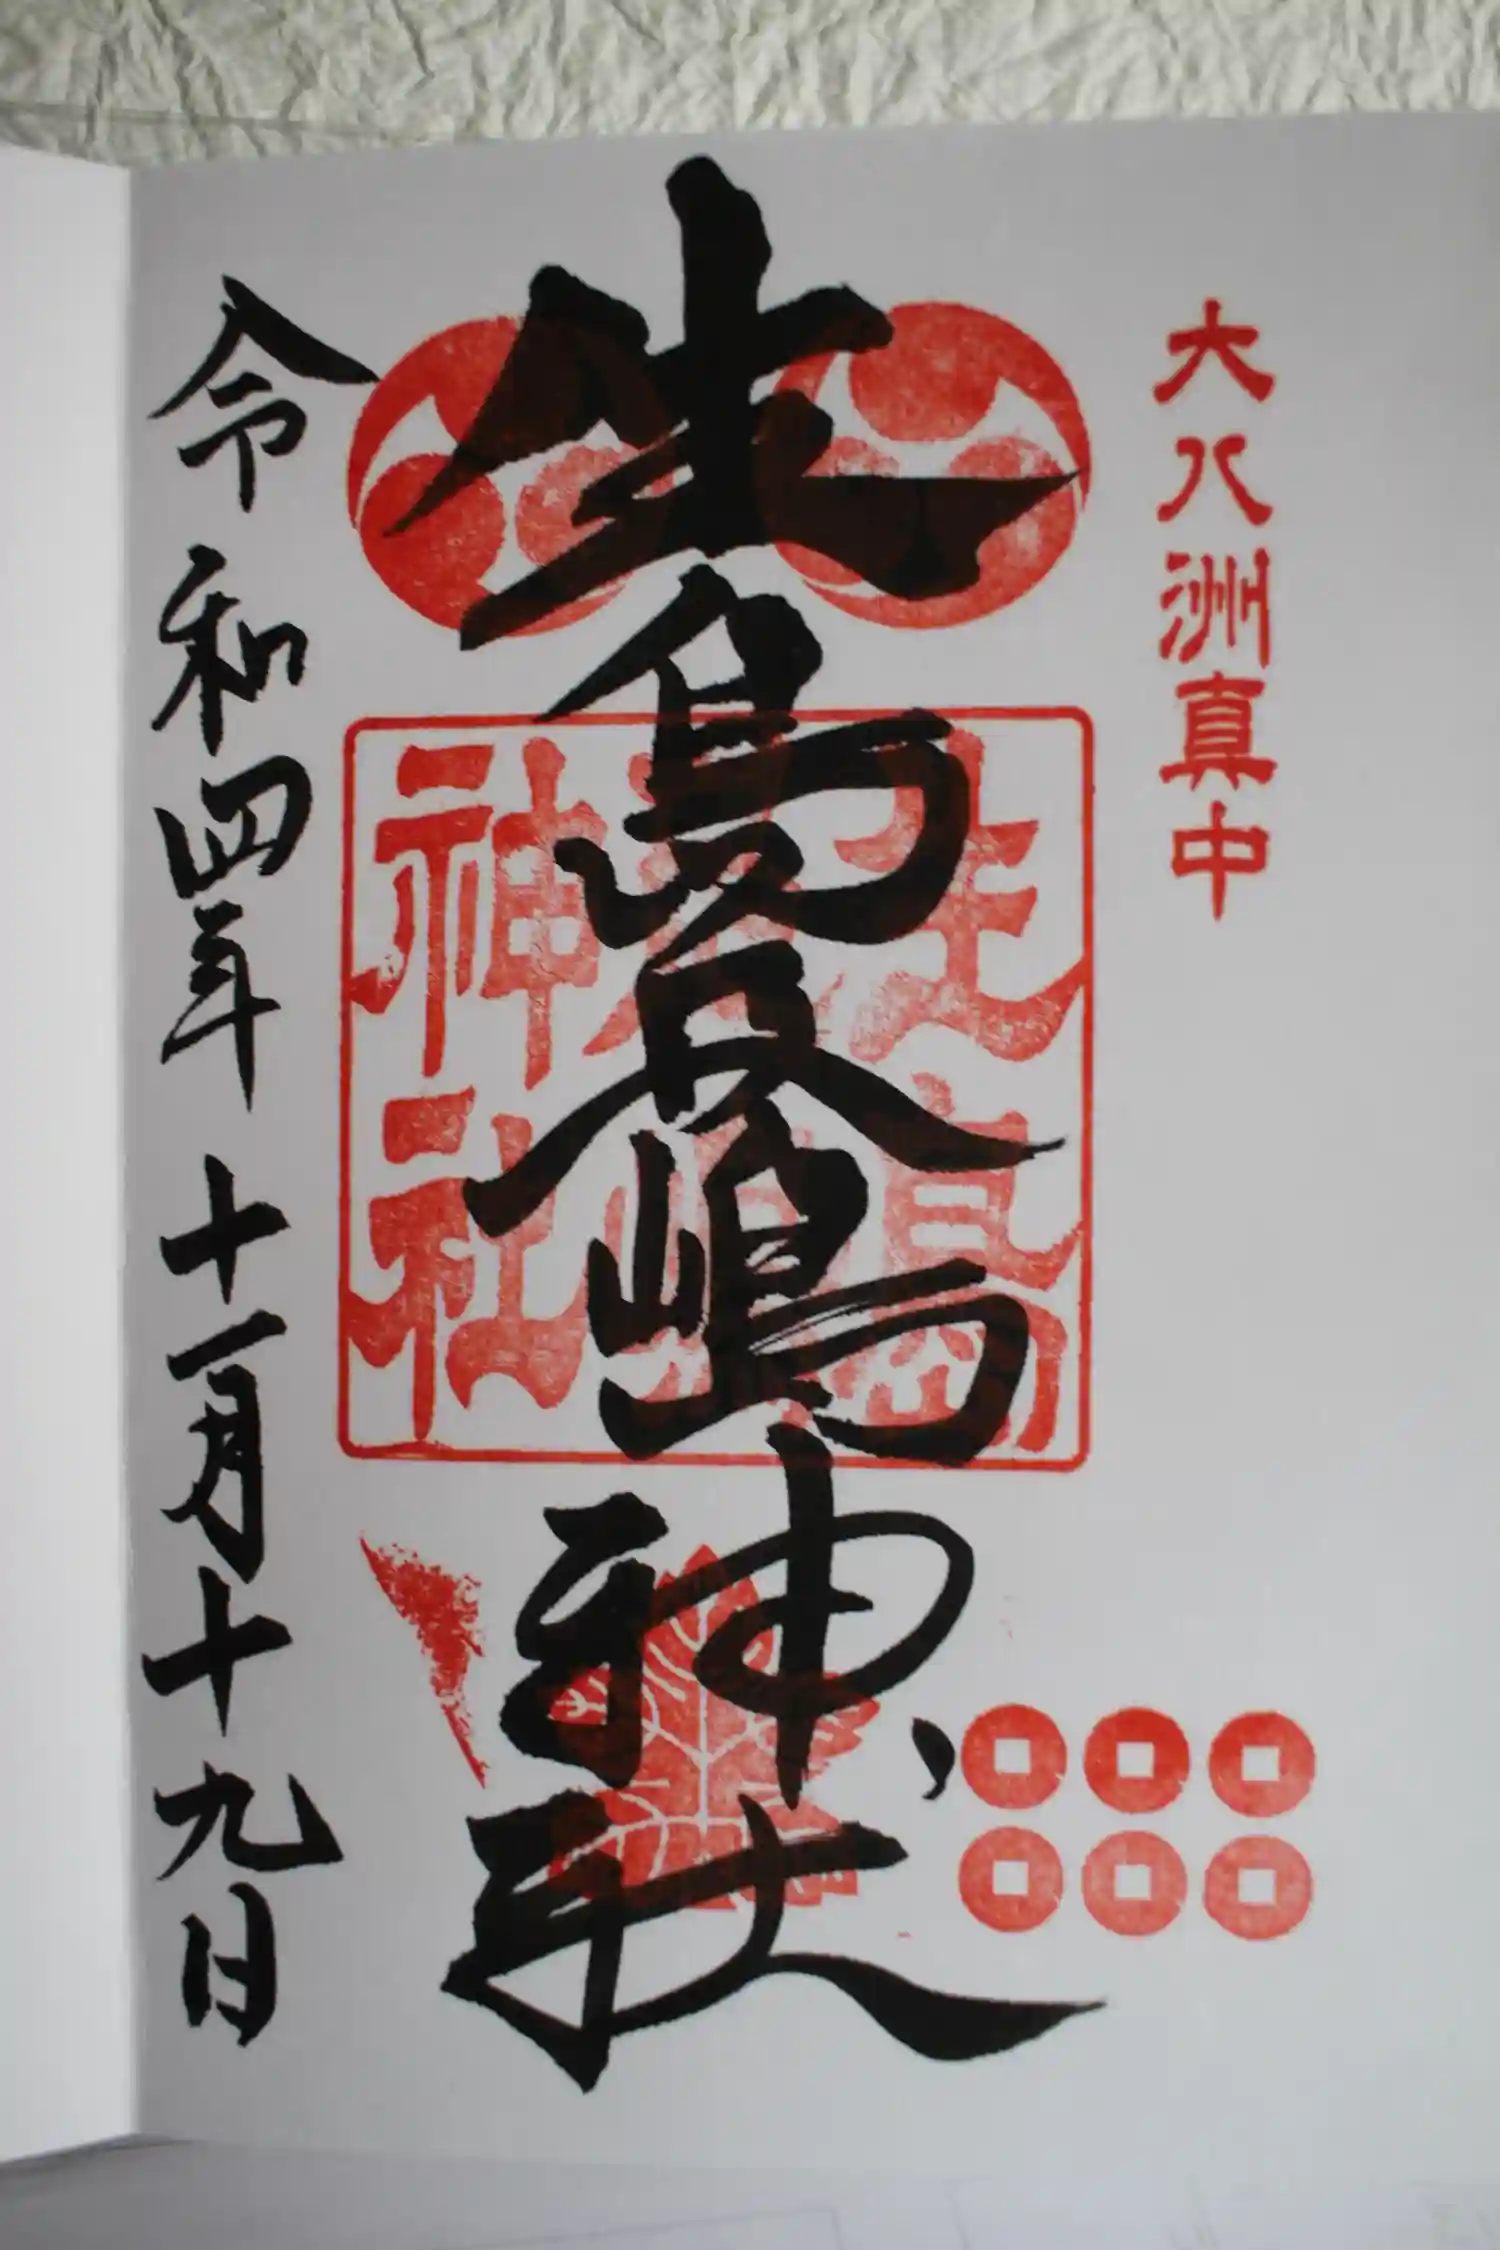 大八洲真中
生島足嶋神社
生島足嶋神社
令和四年十一月十九日